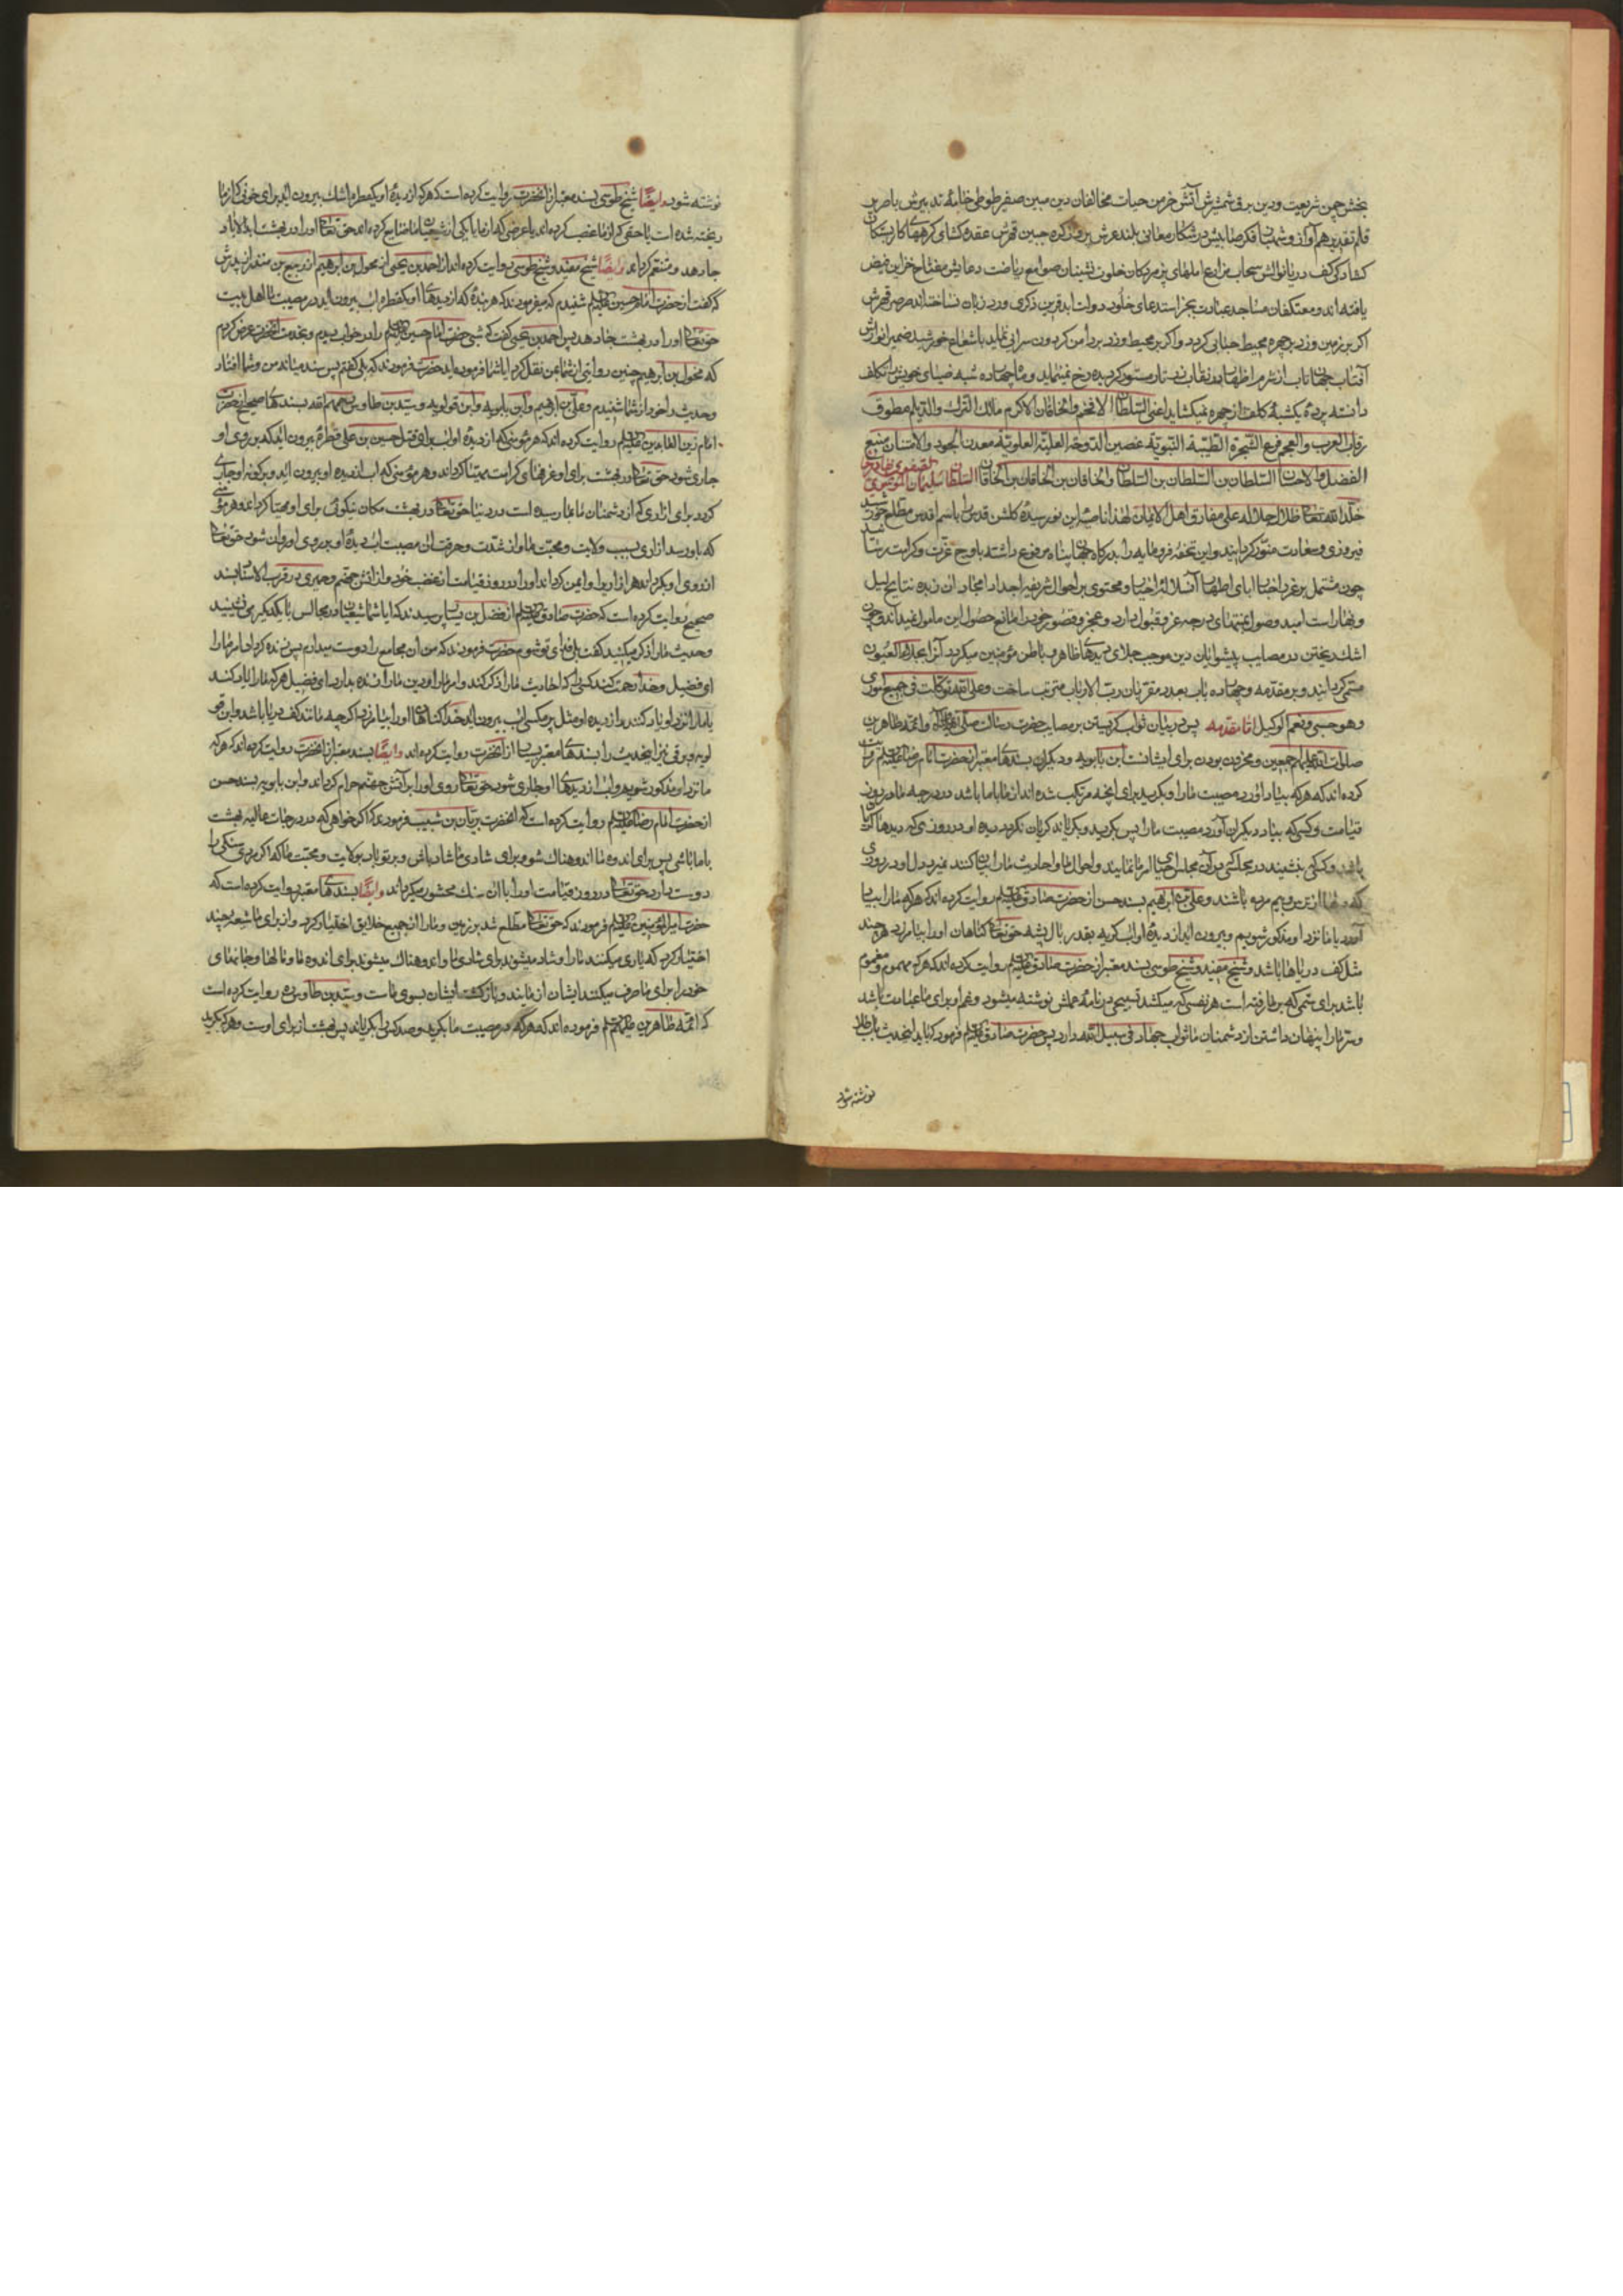 بخش چمن شریعت و دین برق شمشیرش آتش خرمن حیات مخالفان دین مبین صفیر طوطی خامهٔ تدبیرش با صریر
قلم تقدیر هم آواز و شهباز فکر صایبش در شکار معانی بلند عرش پرواز کره جبین قهرش عقده کشای کرههای کار بستکان
کشاد کف دریا نوالش سحاب مزارع املهای پژمردکان خلوت نشینان صوامع ریاضت دعایش مفتاح خزاین فیض
یافته اند و معتکفان مساجد عبادت بجز استدعای خلود دولت ابد قرین ذکری ورد زبان نساخته اند صرصر قهرش
اکر بر زمین وزد بر چهره محیط حبابی کردد و اکر بر محیط وزد بر دامن کردون سرابی نماید با شعاع خورشید ضمیر انوارش
آفتاب جهان تاب از شرم اظهار نقاب مستور کردیده رخ نمینماید و ماه چهارده شبه ضیای خویش را تکلف
دانسته پردهٔ یکشبهٔ کلف از چهره نمیکشاید اعنی السلطان الافخم و الخاقان الاکرم مالک الترک و الدیلم مطوق
رقاب العرب و العجم فرع الشجرة الطیبة النبویة غصن الدوحة العلیة العلویة معدن الجود و الامتنان منبع
الفضل و الاحسان السلطان بن السلطان بن السلطان و الخاقان بن الخاقان بن الخاقان السلطان سلیمان الموسوی الصفوی بهادر خان
خلد الله تعالی ظلال جلاله علی مفارق اهل الایمان لهذا ناصیهٔ این نورسیدهٔ کلشن قدس را باسم اقدس مطلع خورشید
فیروزی و سعادت منور کردانید و این تحفه فرومایه را بدرکاه جهان پناه مرفوع داشته باوج عزت و کرامت رسانید
چون مشتمل بر غرر اخبار ابای اطهار آن سلاله اخیار و محتوی بر احوال شریفه اجداد امجاد آن زبده نتایج لیل
و نهار است امید وصول بمنتهای درجه عز قبول دارد و عجز و قصور خود را مانع حصول این مامول نمیداند و چون
اشک ریختن در مصایب پیشوایان دین موجب جلای دیدهای ظاهر و باطن مؤمنین میکردد آنرا بجلاء العیون
مسمی کردانید و بر مقدمه و چهارده باب بعدد مقربان رب الارباب مترتب ساخت و علی الله توکلت فی جمیع اموری
و هو حسبی و نعم الوکیل اما مقدمه پس در بیان ثواب کریستن بر مصایب حضرت رسالت صلی الله علیه و آله و ائمه طاهرین
صلوات الله علیهم اجمعین و محزون بودن برای ایشانست ابن بابویه و دیکران بسندهای معتبر از حضرت امام رضا علیه السلم روایت
کرده اند که هر که بیاد آورد مصیبت ما را و بکرید برای آنچه مرتکب شده اند از ما با ما باشد در درجه ما در روز
قیامت و کسی که بیاد دیکران آورد مصیبت ما را پس بکرید و بکریاند کریان نکردد دیده او در روزی که دیدها کریان
باشد و کسی که بنشیند در مجلسی که در آن مجلس احیای امر ما نمایند و احوال ما و احادیث ما را بیان کنند نمیرد دل او در روزی
که دلها از بیم مرده باشند و علی بن ابراهیم بسند حسن از حضرت صادق علیه السلم روایت کرده اند که هر که ما را بیاد
آورد یا ما نزد او مذکور شویم و بیرون آید از دیدهٔ او اب کریه بقدر بال پشه حق تعالی کناهان او را بیامرزد هر چند
مثل کف دریاها باشد و شیخ مفید و شیخ طوسی بسند معتبر از حضرت صادق علیه السلم روایت کرده اند که هر که مهموم و مغموم
باشد برای ستمی که بر ما رفته است هر نفسی که میکشد تسبیحی در نامه عملش نوشته میشود و غم او برای ما عبادت باشد
و سر ما را پنهان داشتن از دشمنان ما ثواب جهاد فی سبیل الله دارد پس حضرت صادق علیه السلم فرمود که باید اینحدیث باب طلا
نوشته شود
نوشته شود و ایضا شیخ طوسی بسند معتبر از انحضرت روایت کرده است که هر که از دیدهٔ او یکقطره اشک بیرون اید برای خونی که از ما
ریخته شده است یا حقی که از ما غصب کرده اند یا عرضی که از ما یا یکی از شیعیان ما ضایع کرده اند حق تعالی او را در بهشت ابد الاباد
جا دهد و متنعم کرداند و ایضا شیخ مفید و شیخ طوسی روایت کرده اند از احمد بن یحیی از مخول بن ابراهیم از ربیع بن منذر از پدرش
که کفت از حضرت امام حسین علیه السلم شنیدم که میفرمود که هر بندهٔ که از دیدهای او یکقطره اب بیرون اید در مصیبت ما اهل بیت
حق تعالی او را در بهشت جا دهد پس احمد بن یحیی کفت که شبی حضرت امام حسین علیه السلم را در خواب دیدم و بخدمت انحضرت عرض کردم
که مخول بن ابراهیم چنین روایتی از شما بمن نقل کرد ایا شما فرموده اید حضرت فرمودند که بلی کفتم پس سند میان من و شما افتاد
و حدیث را خود از شما شنیدم و علی بن ابراهیم و ابن بابویه و ابن قولویه و سید بن طاوس رحمهم الله بسندهای صحیح از حضرت
امام زین العابدین علیه السلم روایت کرده اند که هر مؤمنی که از دیدهٔ او اب برای قتل حسین بن علی قطرهٔ بیرون اید که بر روی او
جاری شود حق تعالی در بهشت برای او غرفهای کرامت مهیا کرداند و هر مؤمنی که اب از دیده او بیرون اید و بر کونه او جاری
کردد برای ازاری که از دشمنان ما بما رسیده است در دنیا حق تعالی در بهشت مکان نیکوئی برای او مهیا کرداند و هر مؤمنی
که باو رسد ازاری بسبب ولایت و محبت ما و از شدت و حرقت ان مصیبت اب دیدهٔ او بر روی او روان شود حق تعالی
از روی او بکرداند هر ازار را و ایمن کرداند او را در روز قیامت از غضب خود و از اتش جهنم و حمیری در قرب الاسناد بسند
صحیح روایت کرده است که حضرت صادق علیه السلم از فضیل بن یسار پرسیدند که ایا شما شیعیان در مجالس با یکدیکر می نشینید
و حدیث ما را ذکر میکنید کفت بلی فدای تو شوم حضرت فرمودند که من ان مجامع را دوست میدارم پس زنده کردانید امر ما را
ای فضیل و خدا رحمت کند کسی را که احادیث ما را ذکر کند و امر ما را و دین ما را زنده بدارد ای فضیل هر که ما را یاد کند
یا ما را نزد او یاد کنند و از دیده او مثل پر مکسی اب بیرون اید خدا کناهان او را بیامرزد اکر چه مانند کف دریا باشد و ابن قو
لویه و برقی نیز اینحدیث را بسندهای معتبر بسیار از انحضرت روایت کرده اند و ایضا بسند معتبر از انحضرت روایت کرده اند که هر که
ما نزد او مذکور شویم و اب از دیدهای او جاری شود حق تعالی روی او را بر آتش جهنم حرام کرداند و ابن بابویه بسند حسن
از حضرت امام رضا علیه السلم روایت کرده است که انحضرت بریان بن شبیب فرمود که اکر خواهی که در درجات عالیه بهشت
با ما باشی پس برای اندوه ما اندوهناک شو و برای شادی ما شاد باش و بر تو باد بولایت و محبت ما که اکر مردی سنکی را
دوست دارد حق تعالی در روز قیامت او را با ان سنک محشور میکرداند و ایضا بسندهای معتبر روایت کرده است که
حضرت امیر المؤمنین علیه السلم فرمودند که حق تعالی مطلع شد بر زمین و ما را از جمیع خلایق اختیار کرد و از برای ما شیعهٔ چند
اختیار کرد که یاری میکنند ما را و شاد میشوند برای شادی ما و اندوهناک میشوند برای اندوه ما و مالها و جانهای
خود را برای ما صرف میکنند ایشان از مایند و بازکشت ایشان بسوی ماست و سید بن طاوس ره روایت کرده است
که ائمه طاهرین علیهم السلم فرموده اند که هر که در مصیبت ما بکرید و صد کس را بکریاند پس بهشت از برای اوست و هر که بکرید